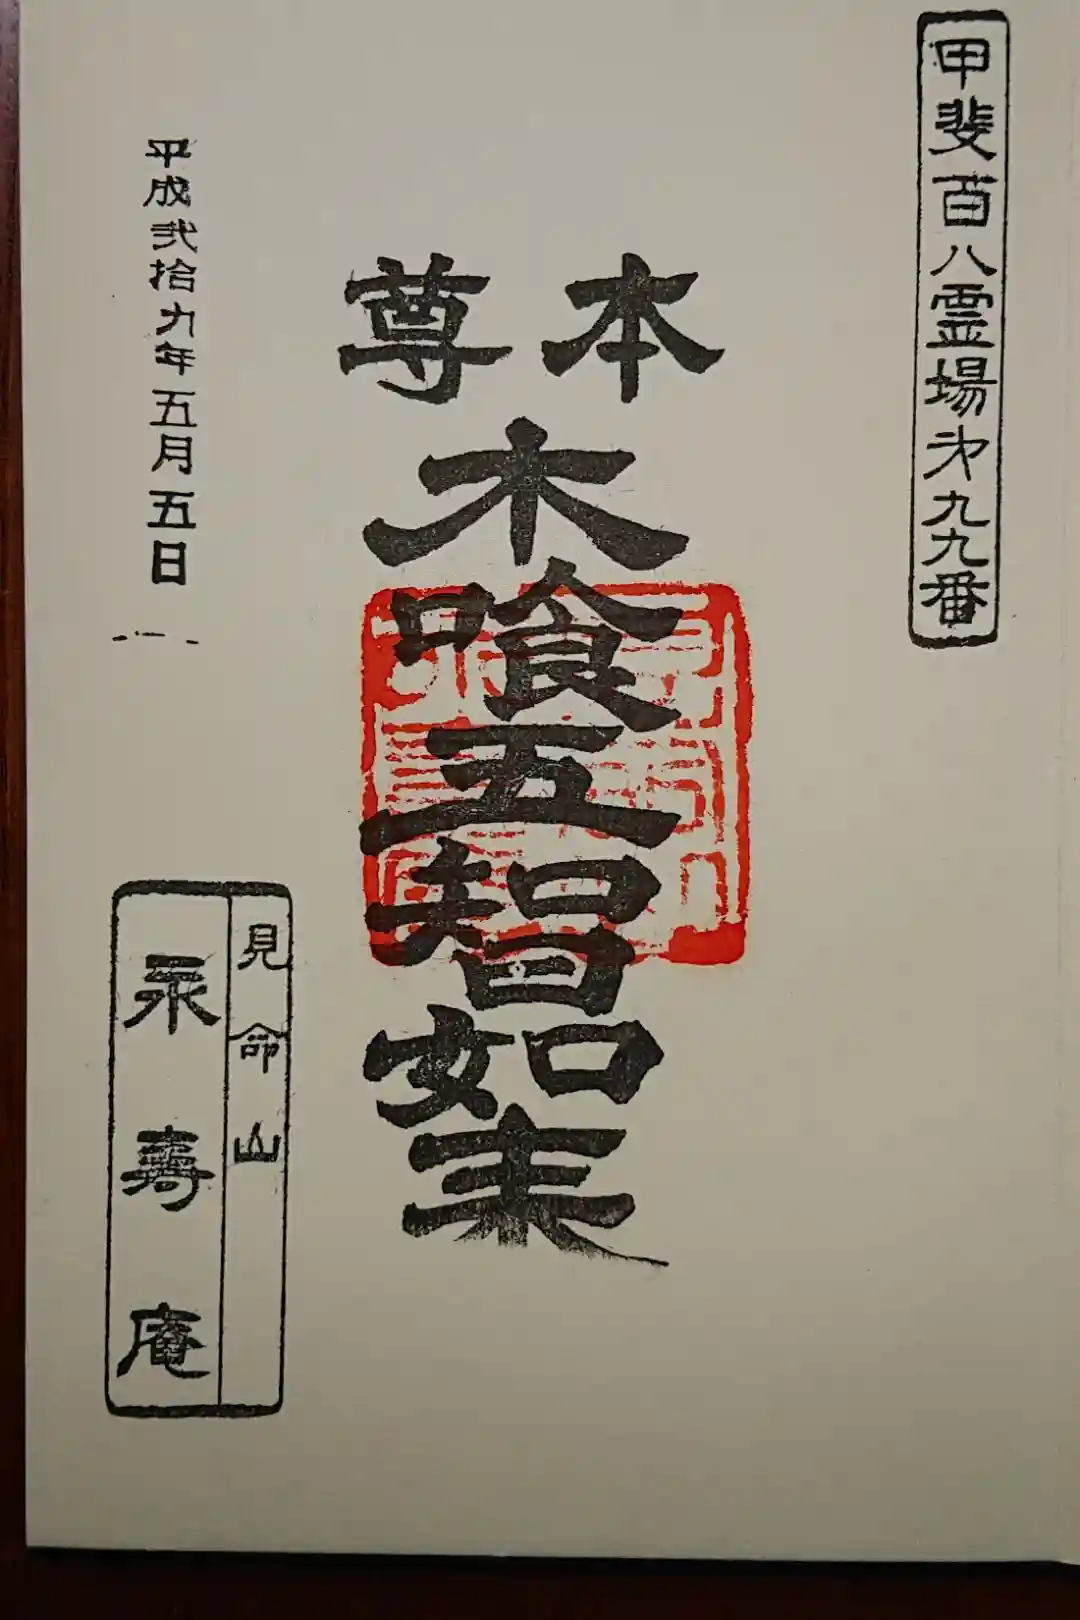 甲斐百八霊場第九九番
本尊
木喰五智如来
平成弐拾九年五月五日
見命山
永壽庵